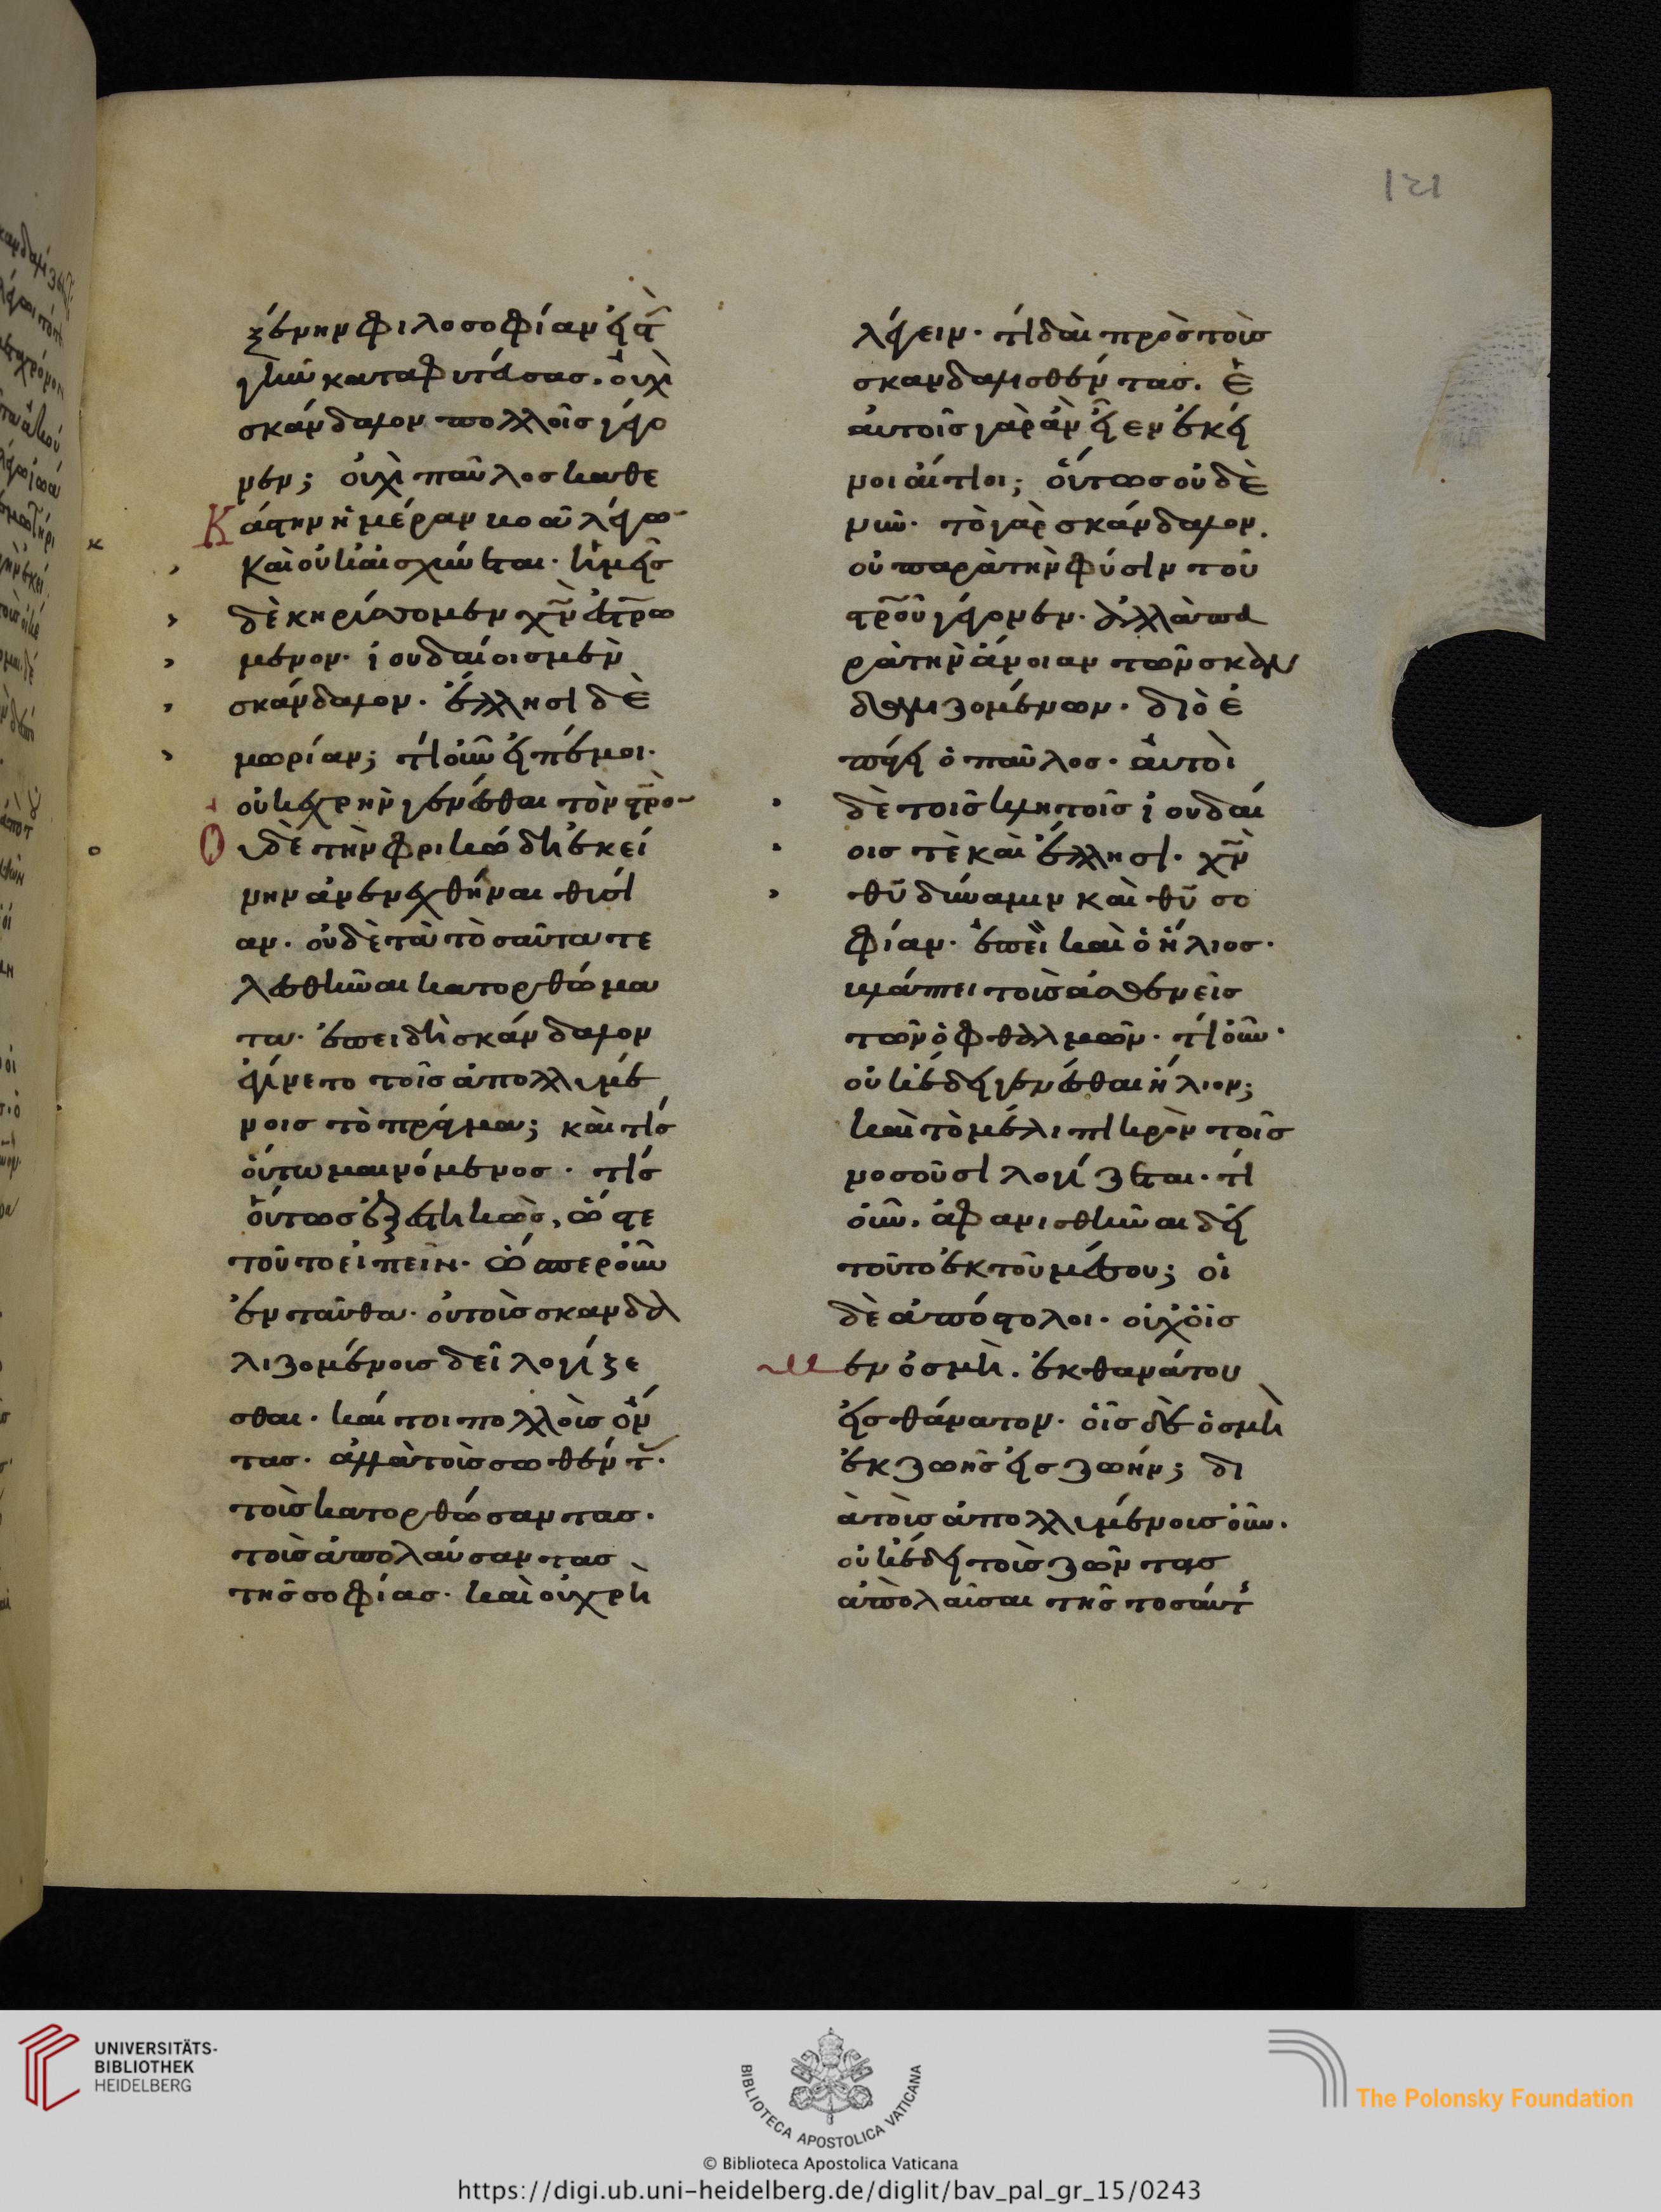 121
ξένην φιλοσοφίαν εἰς τ
γῆν καταφυτεύσας. οὐχὶ
σκάνδαλον πολλοῖς γέγο
νεν; οὐχὶ παῦλος καθε
κάστην ἡμέραν βοᾷ λέγω
καὶ οὐκ αἰσχύνεται. ἡμεῖς
δὲ κηρύσσομεν χ̅ν̅ ἐστρω
μένον. ἰουδαίοις μὲν
σκάνδαλον. ἕλλησι δὲ
μωρίαν; τί οὖν εἰπέ μοι.
οὐκ ἐχρῆν γενέσθαι τὸν στρο
ὐδὲ τὴν φρικώδη ἐκεί
νην ἀνενεχθῆναι θυσί
αν. οὐδὲ τὰ τοσαῦτα τε
λεσθῆναι κατορθώμα
τα. ἐπειδὴ σκάνδαλον
ἐγίνετο τοῖς ἀπολλυμέ
νοις τὸ πρᾶγμα; καὶ τίς
οὕτω μαινόμενος. τίς
οὕτως ἐξεστηκὼς, ὥστε
τοῦτο εἰπεῖν. ὥσπερ οὖν
ἐνταῦθα. οὐ τοὺς σκανδα
λιζομένους δεῖ λογίζε
σθαι. καί τοι πολλοὺς ὄν
τας. ἀλλὰ τοὺς σωθέντ.
τοὺς κατορθώσαντας.
τοὺς ἀπολαύσαντας
τῆς σοφίας. καὶ οὐ χρὴ
λέγειν. τί δαὶ πρὸς τοὺς
σκανδαλισθέντας. ἑ
αυτοῖς γὰρ ἂν εἶεν ἐκεῖ
νοι αἴτιοι; οὕτως οὐδὲ
νῦν. τὸ γὰρ σκάνδαλον.
οὐ παρὰ τὴν φύσιν τοῦ
στρ̅ου γέγονεν. ἀλλὰ πα
ρὰ τὴν ἄνοιαν τῶν σκαν
δαλιζομένων. διὸ ἐ
πάγει ὁ παῦλος. αὐτοὶ
δὲ τοῖς κλητοῖς ἰουδαί
οις τὲ καὶ ἕλλησι. χ̅ν̅
θ̅υ̅ δύναμιν καὶ θ̅υ̅ σο
φίαν. ἐπεὶ καὶ ὁ ἥλιος.
βλάπτει τοὺς ἀσθενεῖς
τῶν ὀφθαλμῶν. τί οὖν.
οὐκ ἔδει γενέσθαι ἥλιον;
καὶ τὸ μέλι πικρὸν τοῖς
νοσοῦσι λογίζεται. τί
οὖν. ἀφανισθῆναι δεῖ
τοῦτο ἐκ τοῦ μέσου; οἱ
δὲ ἀπόστολοι. οὐχ οἷς
μὲν ὀσμὴ. ἐκ θανάτου
εἰς θάνατον. οἷς δὲ ὀσμὴ
ἐκ ζωῆς εἰς ζωήν; δι
ὰ τοὺς ἀπολλυμένους οὖν.
οὐκ ἔδει τοὺς ζῶντας
ἀπολαῦσαι τῆς τοσαύτ
UNIVERSITÄTS-
BIBLIOTHEK
HEIDELBERG
BIBLIOTECA APOSTOLICA VATICANA
The Polonsky Foundation
© Biblioteca Apostolica Vaticana
https://digi.ub.uni-heidelberg.de/diglit/bav_pal_gr_15/0243